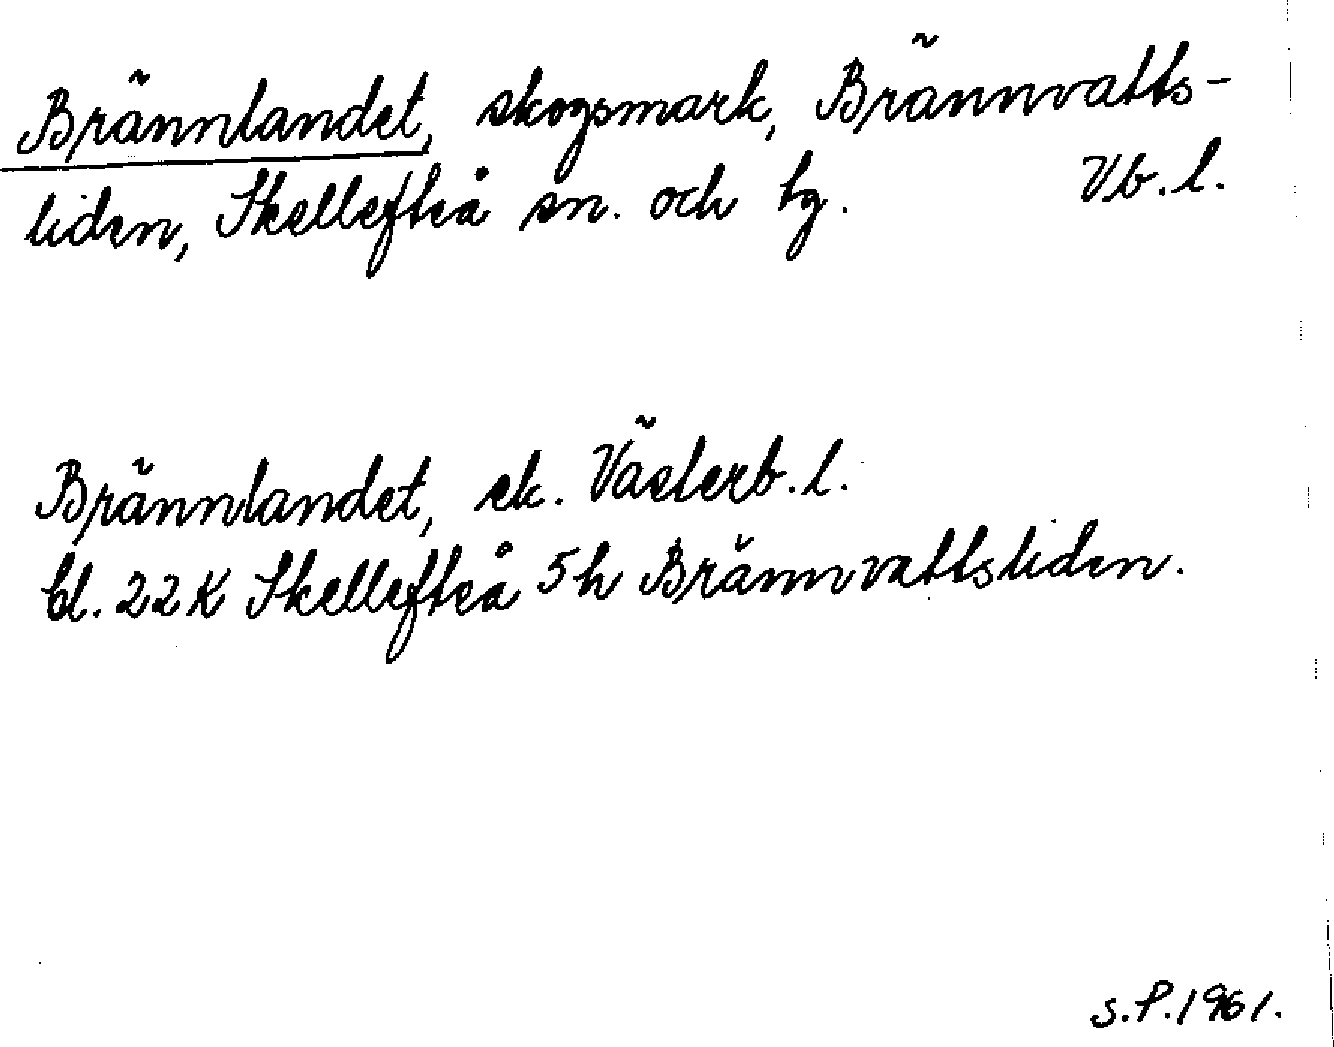 Brännlandet, skogsmark, Brännvatts-
liden, Skellefteå sn. och tg. Vb.l.
Brännlandet, ek. Västerb.l.
bl. 22K Skellefteå 5h Brännvattsliden.
S.P.1961.